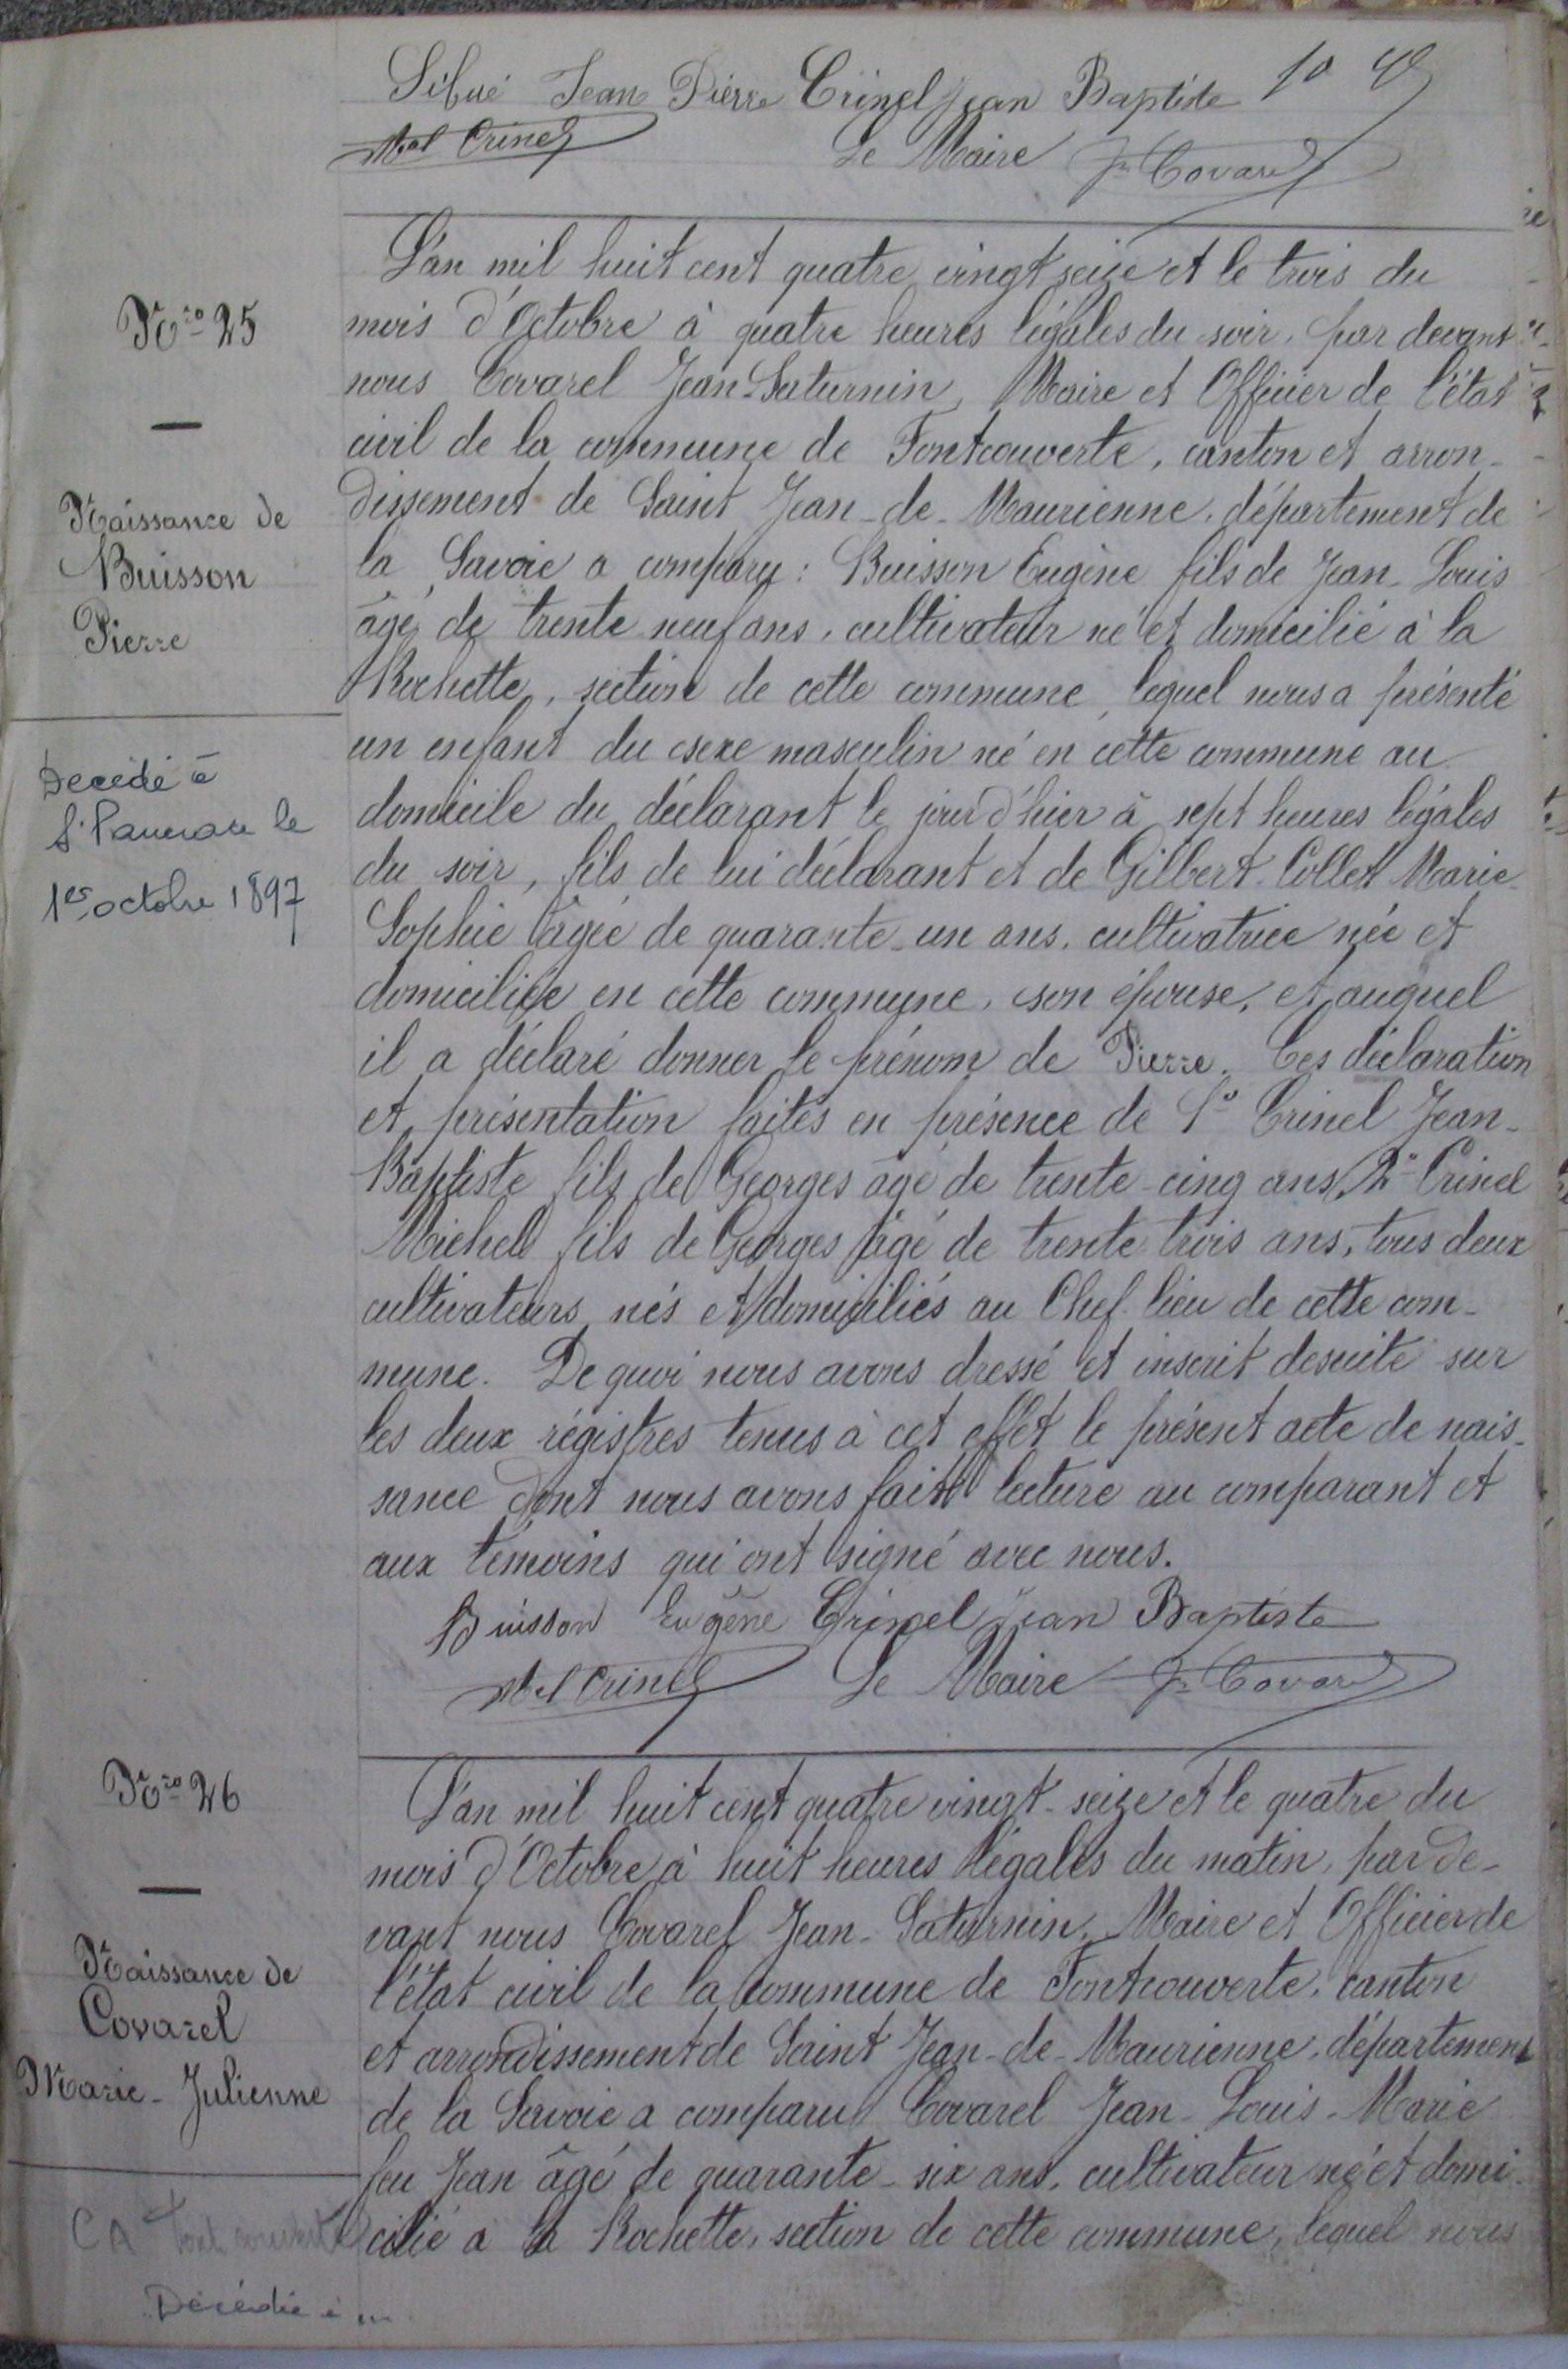 Sibué Jean Pierre Crinel Jean Baptiste 10
Mel Crinel Le Maire Jn Covarel
Nro 25
Naissance de
Buisson
Pierre
Decédé à
St Pancrace le
1er octobre 1897
L'an mil huit cent quatre vingt seize et le trois du
mois d'Octobre à quatre heures légales du soir, par devant
nous Covarel Jean-Saturnin, Maire et Officier de l'état
civil de la commune de Fontcouverte, canton et arron-
dissement de Saint Jean-de-Maurienne, département de
la Savoie a comparu : Buisson Eugène fils de Jean-Louis
âgé de trente neuf ans, cultivateur né et domicilié à la
Rochette, section de cette commune, lequel nous a présenté
un enfant du sexe masculin né en cette commune au
domicile du déclarant le jour d'hier à sept heures légales
du soir, fils de lui déclarant et de Gilbert-Collet Marie-
Sophie âgée de quarante-un ans, cultivatrice née et
domiciliée en cette commune, son épouse, et auquel
il a déclaré donner le prénom de Pierre. Ces déclaration
et présentation faites en présence de 1º Crinel Jean-
Baptiste fils de Georges âgé de trente-cinq ans, 2º Crinel
Michel fils de Georges âgé de trente trois ans, tous deux
cultivateurs, nés et domiciliés au Chef-lieu de cette com-
mune. De quoi nous avons dressé et inscrit desuite sur
les deux régistres tenus à cet effet le présent acte de nais-
sance dont nous avons fait lecture au comparant et
aux témoins qui ont signé avec nous.
Buisson Eugène Crinel Jean Baptiste
Mel Crinel Le Maire Jn Covarel
Nro 26
Naissance de
Covarel
Marie-Julienne
CA Fontcouverte
Décédée à
L'an mil huit cent quatre vingt-seize et le quatre du
mois d'Octobre à huit heures légales du matin, par de-
vant nous Covarel Jean-Saturnin, Maire et Officier de
l'état civil de la commune de Fontcouverte, canton
et arrondissement de Saint Jean-de-Maurienne, département
de la Savoie a comparu Covarel Jean-Louis-Marie
feu Jean âgé de quarante-six ans, cultivateur né et domi-
cilié a la Rochette, section de cette commune, lequel nous